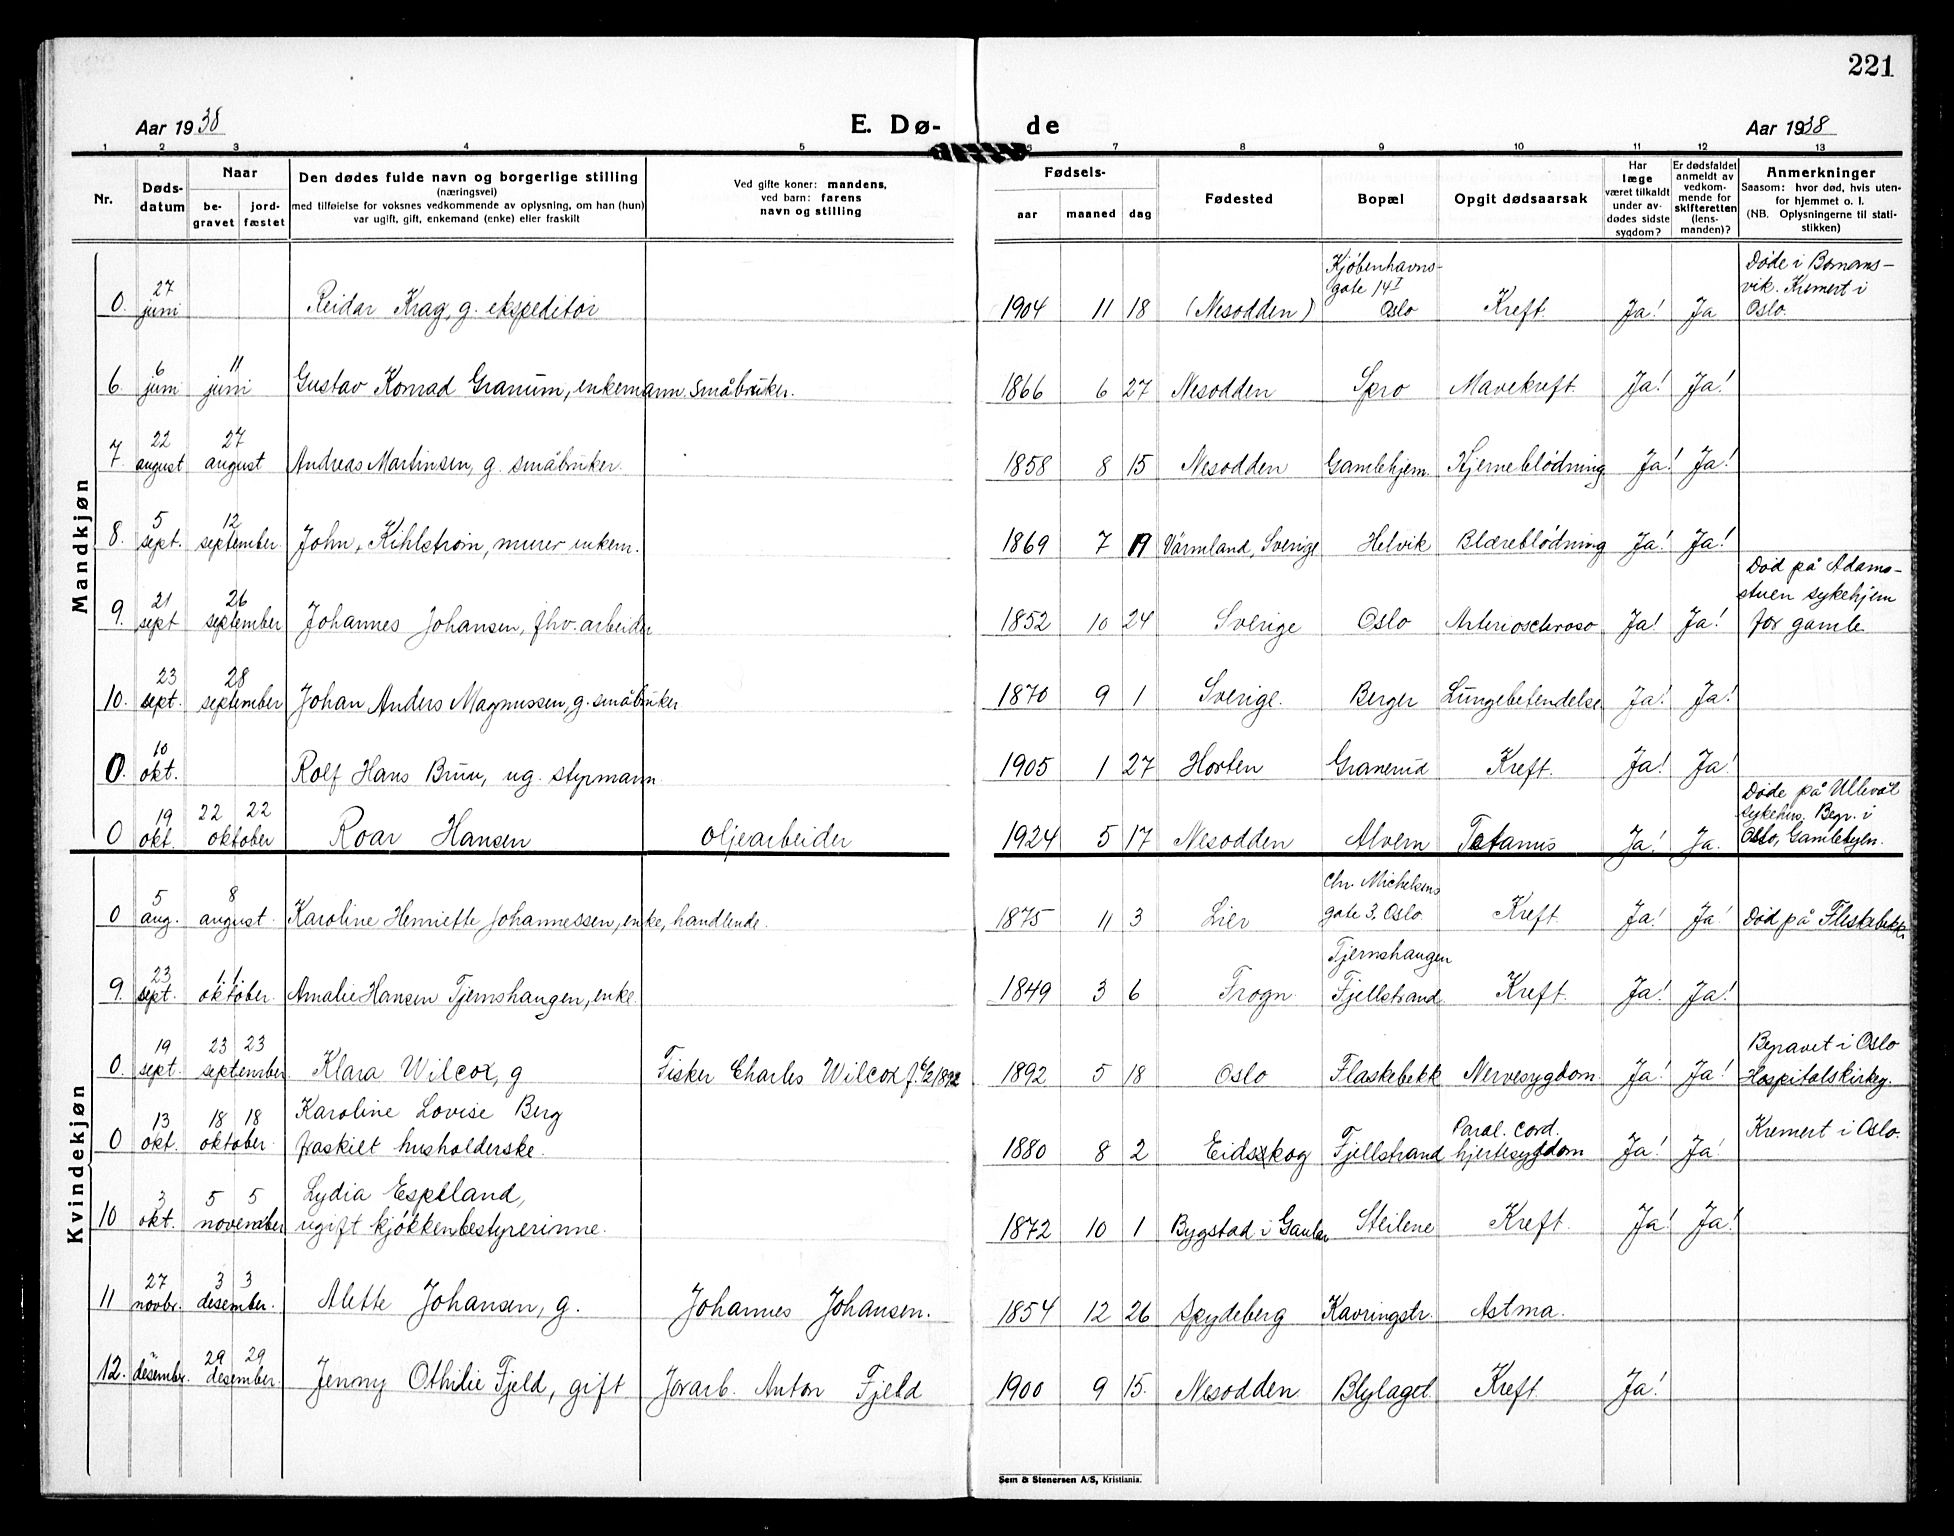 221
Aar 1938 E. Dø- de Aar 1938
1 2 3 4 5 7 8 9 10 11 12 13
Nr. Døds-datum Naar be-gravet jord-fæstet Den dødes fulde navn og borgerlige stilling (næringsvei) med tilføielse for voksnes vedkommende av oplysning, om han (hun) var ugift, gift, enkemand (enke) eller fraskilt Ved gifte koner: mandens, ved barn: farens navn og stilling Fødsels- aar maaned dag Fødested Bopæl Opgit dødsaarsak Har læge været tilkaldt under av-dødes sidste sygdom? Er dødsfaldet anmeldt av vedkom-mende for skifteretten (lens-manden)? Anmerkninger Saasom: hvor død, hvis uten-for hjemmet o. l. (NB. Oplysningerne til stati-stikken)
Mandkjøn
0. 27 juni Reidar Krag, g. ekspeditør 1904 11 18 (Nesodden) Kjøbenhavns-gate 14 I Oslo Kreft. Ja! Ja Døde i Bomans-vik. Kremert i Oslo.
6. 6 juni 11 juni Gustav Konrad Granum, enkemann. småbruker. 1866 6 27 Nesodden Spro Mavekreft. Ja! Ja!
7. 22 august 27 august Andreas Martinsen, g. småbruker. 1858 8 15 Nesodden Gamlehjem. Hjerneblødning Ja! Ja!
8. 5 sept. 12 september John, Kihlstrøm, murer enkem. 1869 7 19 Värmland, Sverige Helvik Blæreblødning Ja! Ja!
9. 21 sept 26 september Johannes Johansen, fhv. arbeider 1852 10 24 Sverige Oslo Arteriosclerose Ja! Ja! Død på Adams-stuen sykehjem for gamle
10. 23 sept. 28 september Johan Anders Magnussen, g. småbruker 1870 9 1 Sverige. Berger Lungebetendelse Ja! Ja!
0. 10 okt. Rolf Hans Bruu, ug. styrmann. 1905 1 27 Horten Granerud Kreft. Ja! Ja!
0 19 okt. 22 22 oktober Roar Hansen oljearbeider 1924 5 17 Nesodden Alvern Tetanus Ja! Ja. Døde på Ullevål sykehus. Begr. i Oslo, Gamlebyen.
Kvindekjøn
0 5 aug. 8 august. Karoline Henriette Johannessen, enke, handlende. 1875 11 3 Lier Chr. Michelsens gate 3. Oslo Kreft. Ja! Ja! Død på Fleskebekk
9. 23 sept. 1 1 oktober. Amalie Hansen Tjernshaugen, enke. 1849 3 6 Frogn. Tjernshaugen Fjellstrand. Kreft. Ja! Ja!
0. 19 sept. 23 23 september Klara Wilcox, g Fisker Charles Wilcox 1892 5 18 Oslo Flaskebekk Nervesygdom. Ja! Ja! Begravet i Oslo Hospitalskirkeg.
0 13 okt. 18 18 oktober. Karoline Lovise Berg fraskilt husholderske. 1880 8 2 Eidsskog Fjellstrand Paral. cord. hjertesygdom Ja! Ja! Kremert i Oslo.
10 3 okt. 5 5 november Lydia Espeland, ugift kjøkkenbestyrerinne. 1872 10 1 Bygstad i Gaular Steilene Kreft. Ja! Ja!
11 27 novbr. 3 3 desember. Alette Johansen, g. Johannes Johansen. 1854 12 26 Spydeberg Kavringstr. Astma.
12. desembr. 29 29 desember. Jenny Othilie Fjeld, gift Jorarb. Anton Fjeld 1900 9 15. Nesodden Blylaget. Kreft. Ja!
Sem & Stenersen A/S, Kristiania.